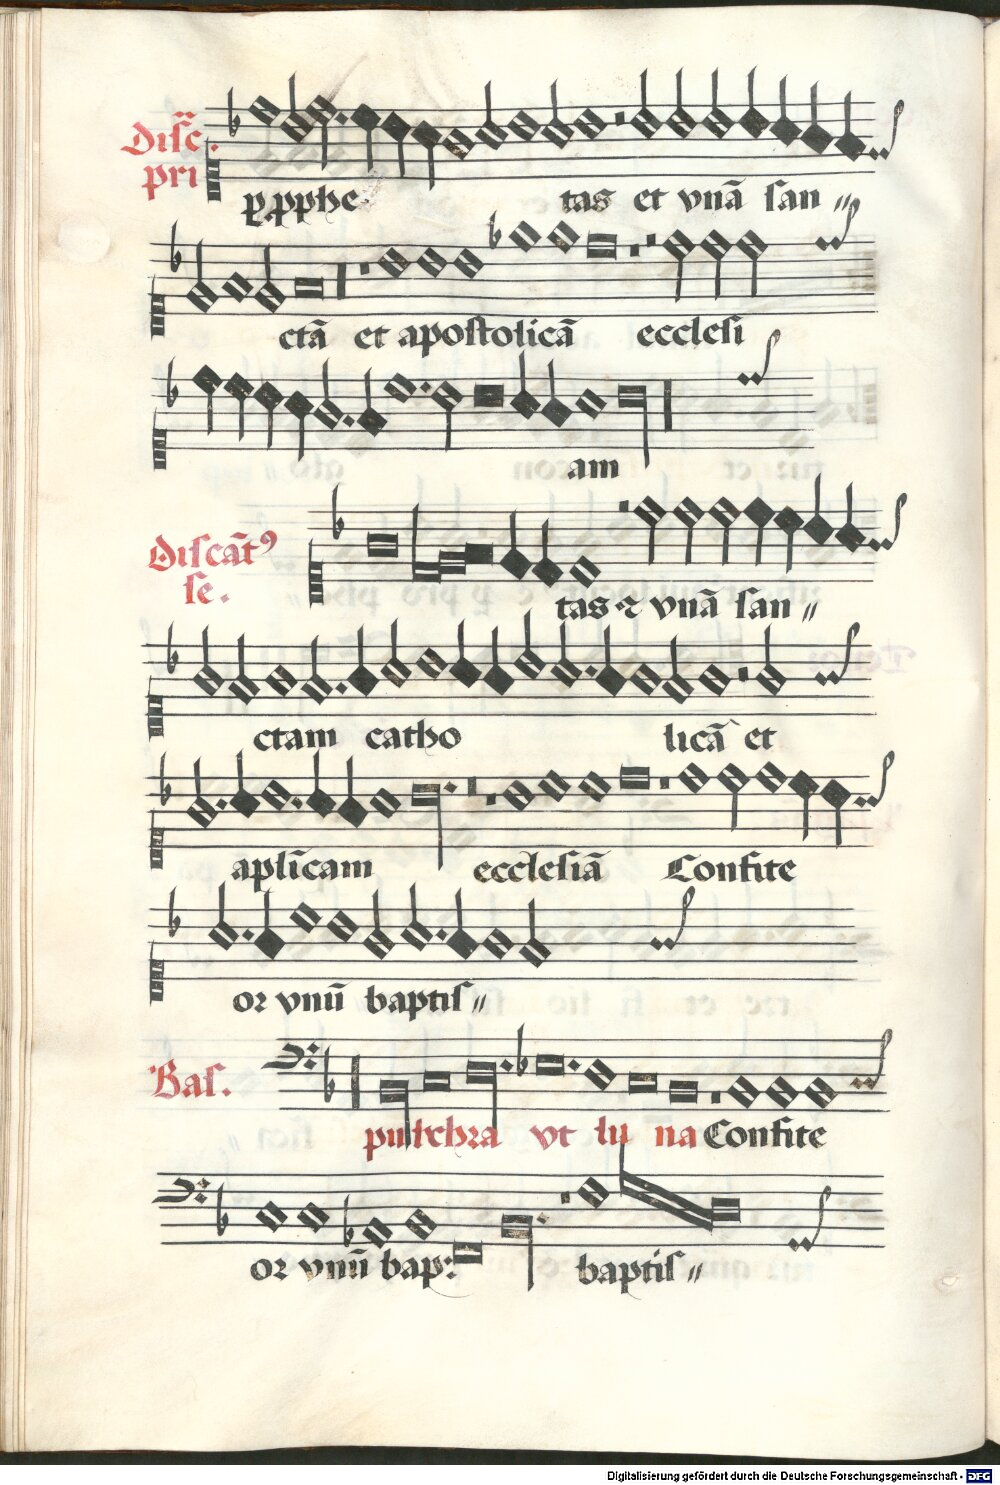 Disc̄.
pri
ꝑ ꝓphe tas et vnā san〃
ctā et apostolicā ecclesi
am
Discātꝰ
se.
tas ⁊ vnā san〃
ctam catho licā et
apl̄icam ecclesiā Confite
or vnū baptis〃
Bas.
pulchra vt lu na Confite
or vnū bap: baptis〃
Digitalisierung gefördert durch die Deutsche Forschungsgemeinschaft - DFG